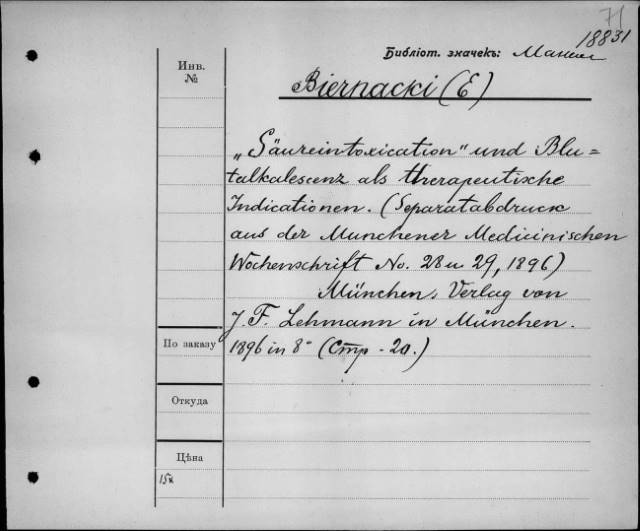 71
18831
Библіот. значекъ:
Инв.
№
Biernacki (E)
„Säureintoxication" und Blu=
talkalescenz als therapeutische
Indicationen. (Separatabdruck
aus der Munchener Medicinischen
Wochenschrift No. 28 u 29, 1896)
München, Verlag von
J. F. Lehmann in München.
По заказу
1896 in 8° (Стр - 20.)
Откуда
Цѣна
15к